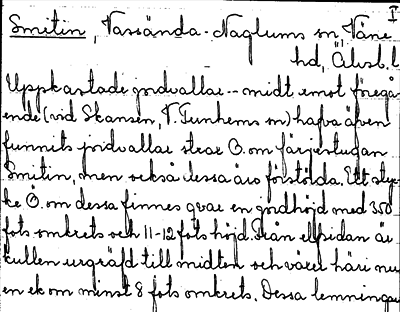 I
Smitin, Vassända-Naglums sn, Väne
hd, Älvsb. l
Uppkastade jordvallar -- midt emot föregå
ende (vid Skansen, V. Tunhems sn) hafva även
funnits jordvallar strax Ö. om färjestugan
Smitin, men också dessa äro förstörda. Ett styc
ke Ö. om dessa finnes qvar en jordhöjd med 350
fots omkrets och 11-12 fots höjd. Från elfsidan är
kullen urgräfd till midten och växer häri nu
en ek om minst 8 fots omkrets. Dessa lemningar